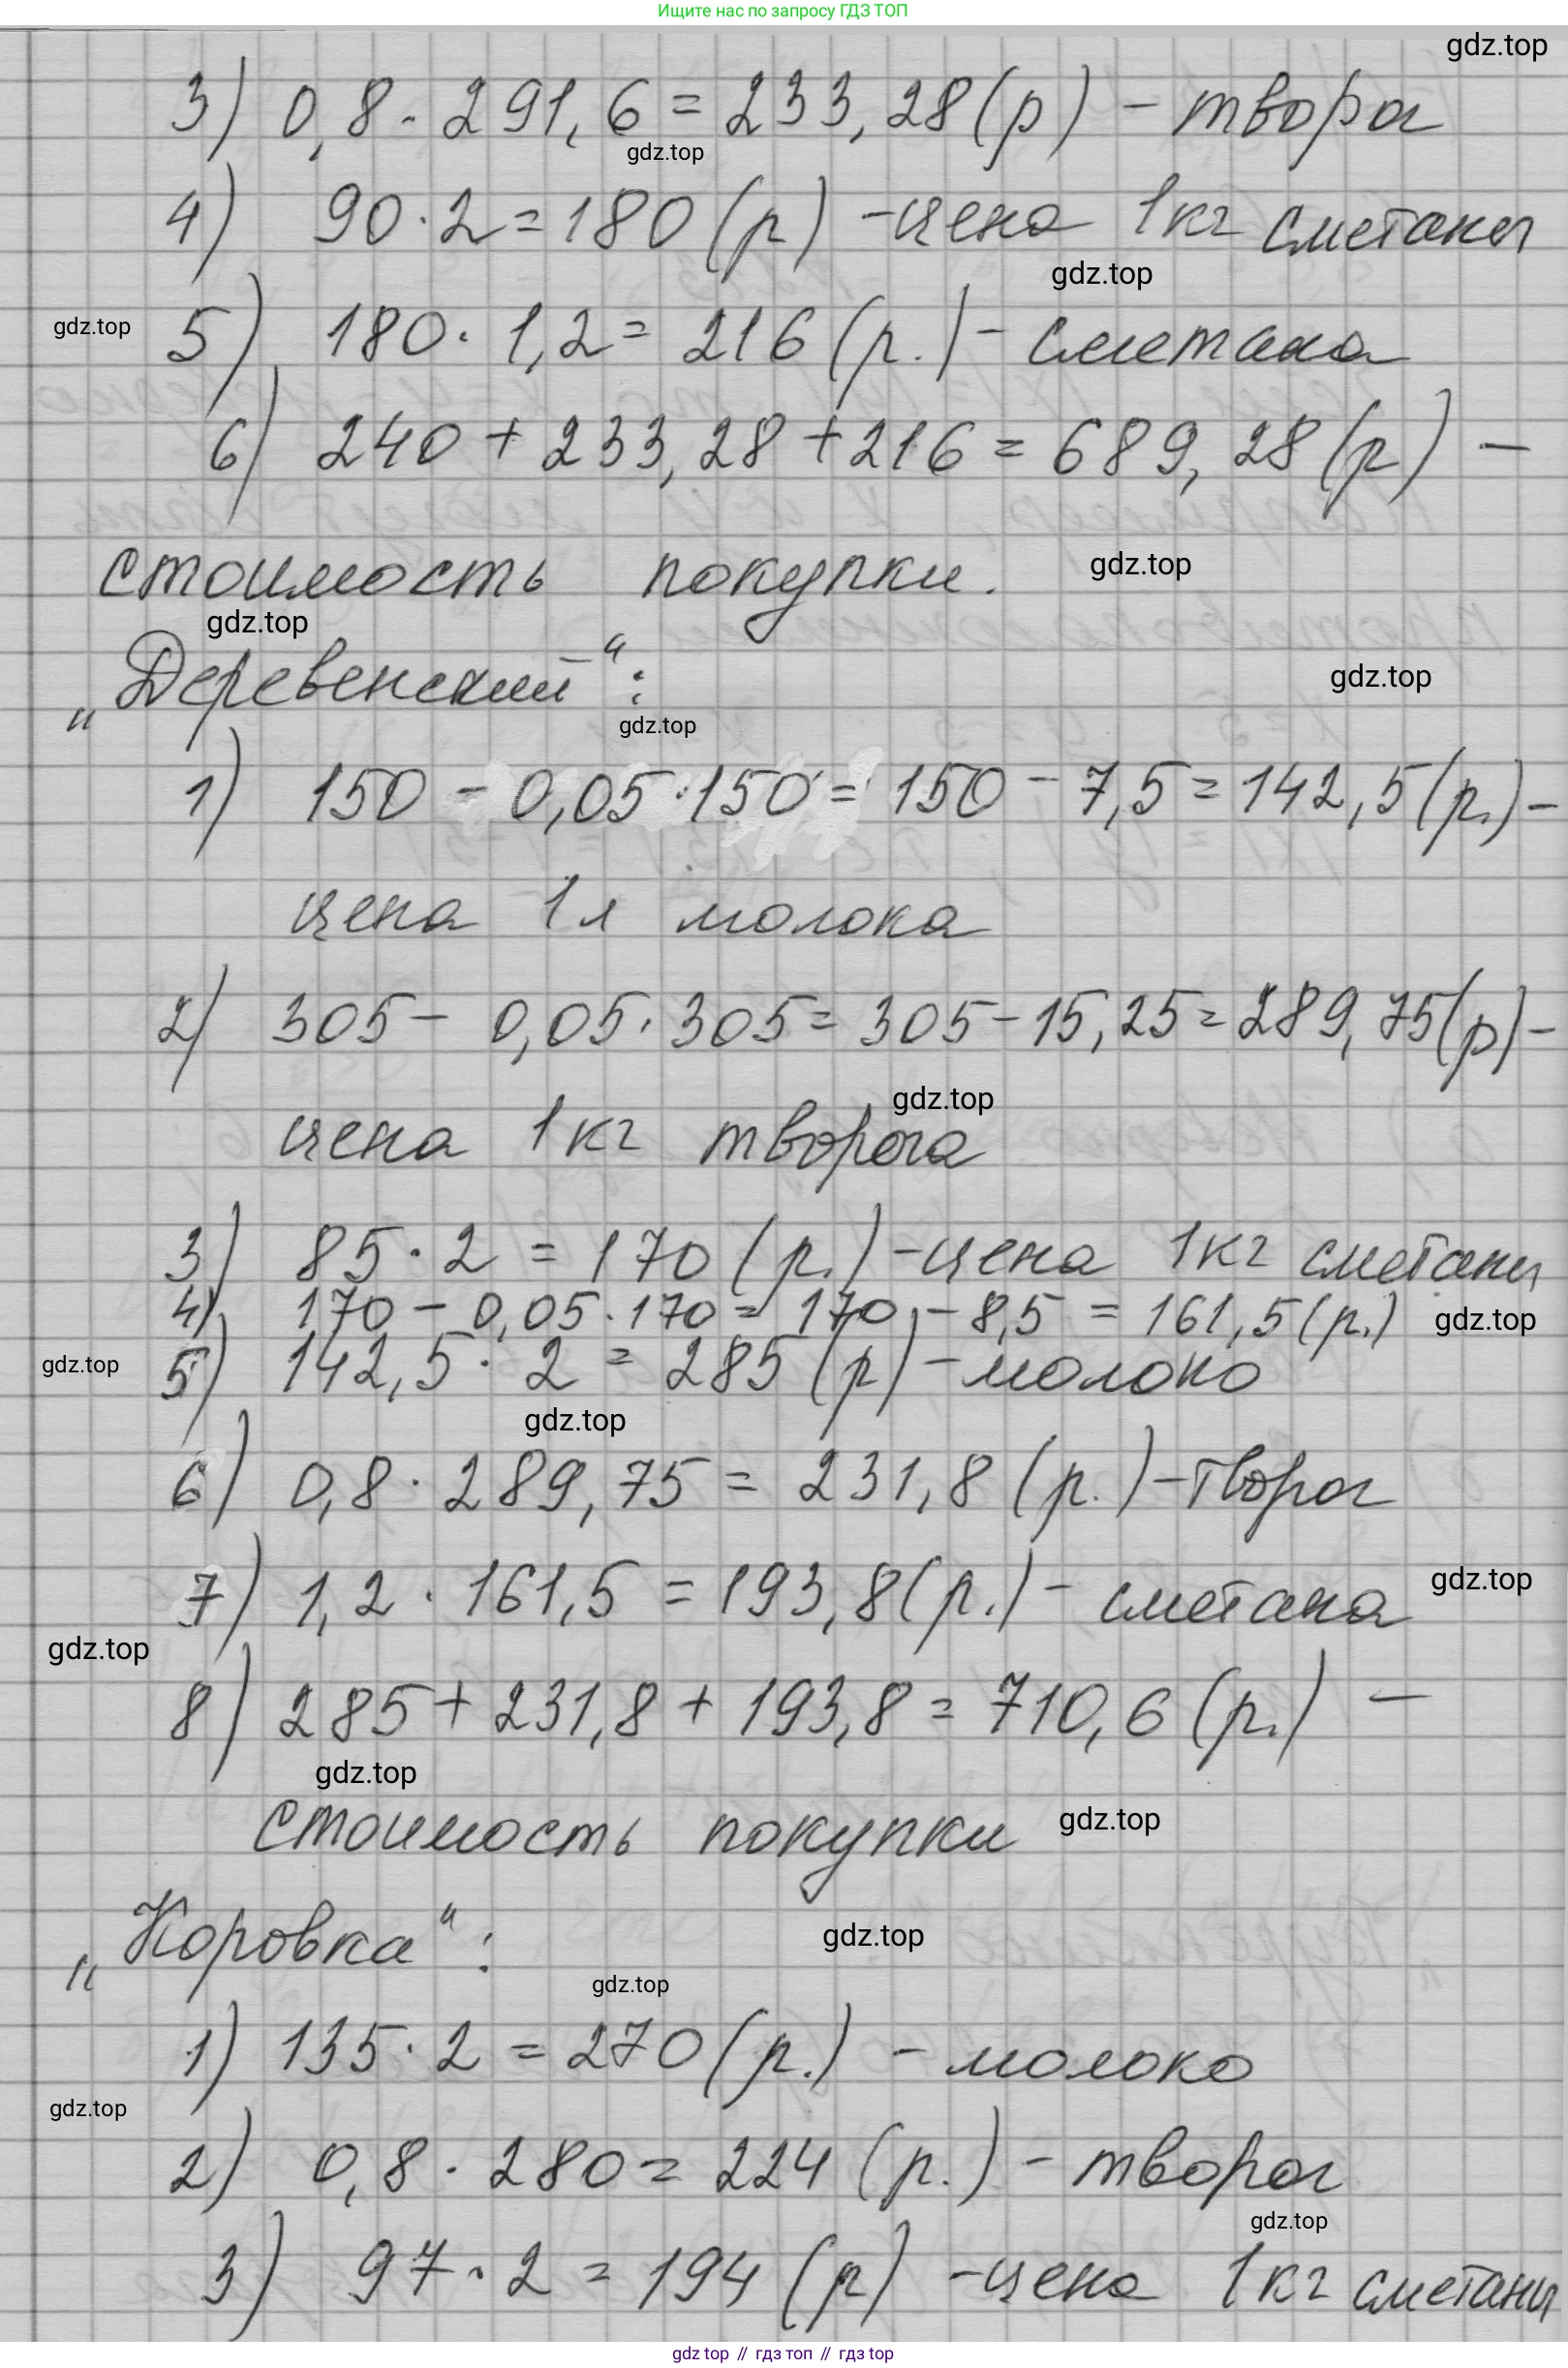 Ищите нас по запросу ГДЗ ТОП
gdz.top
3) 0,8 · 291,6 = 233,28 (р) - творог
gdz.top
4) 90 · 2 = 180 (р) - цена 1кг сметаны
gdz.top
gdz.top
5) 180 · 1,2 = 216 (р.) - сметана
6) 240 + 233,28 + 216 = 689,28 (р) -
стоимость покупки.
gdz.top
gdz.top
„Деревенский“:
gdz.top
gdz.top
1) 150 - 0,05 · 150 = 150 - 7,5 = 142,5 (р.) -
цена 1л молока
2) 305 - 0,05 · 305 = 305 - 15,25 = 289,75 (р) -
gdz.top
цена 1кг творога
3) 85 · 2 = 170 (р.) - цена 1кг сметаны
4) 170 - 0,05 · 170 = 170 - 8,5 = 161,5 (р.)
gdz.top
gdz.top
5) 142,5 · 2 = 285 (р) - молоко
gdz.top
6) 0,8 · 289,75 = 231,8 (р.) - творог
7) 1,2 · 161,5 = 193,8 (р.) - сметана
gdz.top
gdz.top
8) 285 + 231,8 + 193,8 = 710,6 (р.) -
gdz.top
стоимость покупки
gdz.top
„Коровка“:
gdz.top
gdz.top
1) 135 · 2 = 270 (р.) - молоко
gdz.top
2) 0,8 · 280 = 224 (р.) - творог
gdz.top
3) 97 · 2 = 194 (р) - цена 1кг сметаны
gdz.top // гдз топ // gdz.top